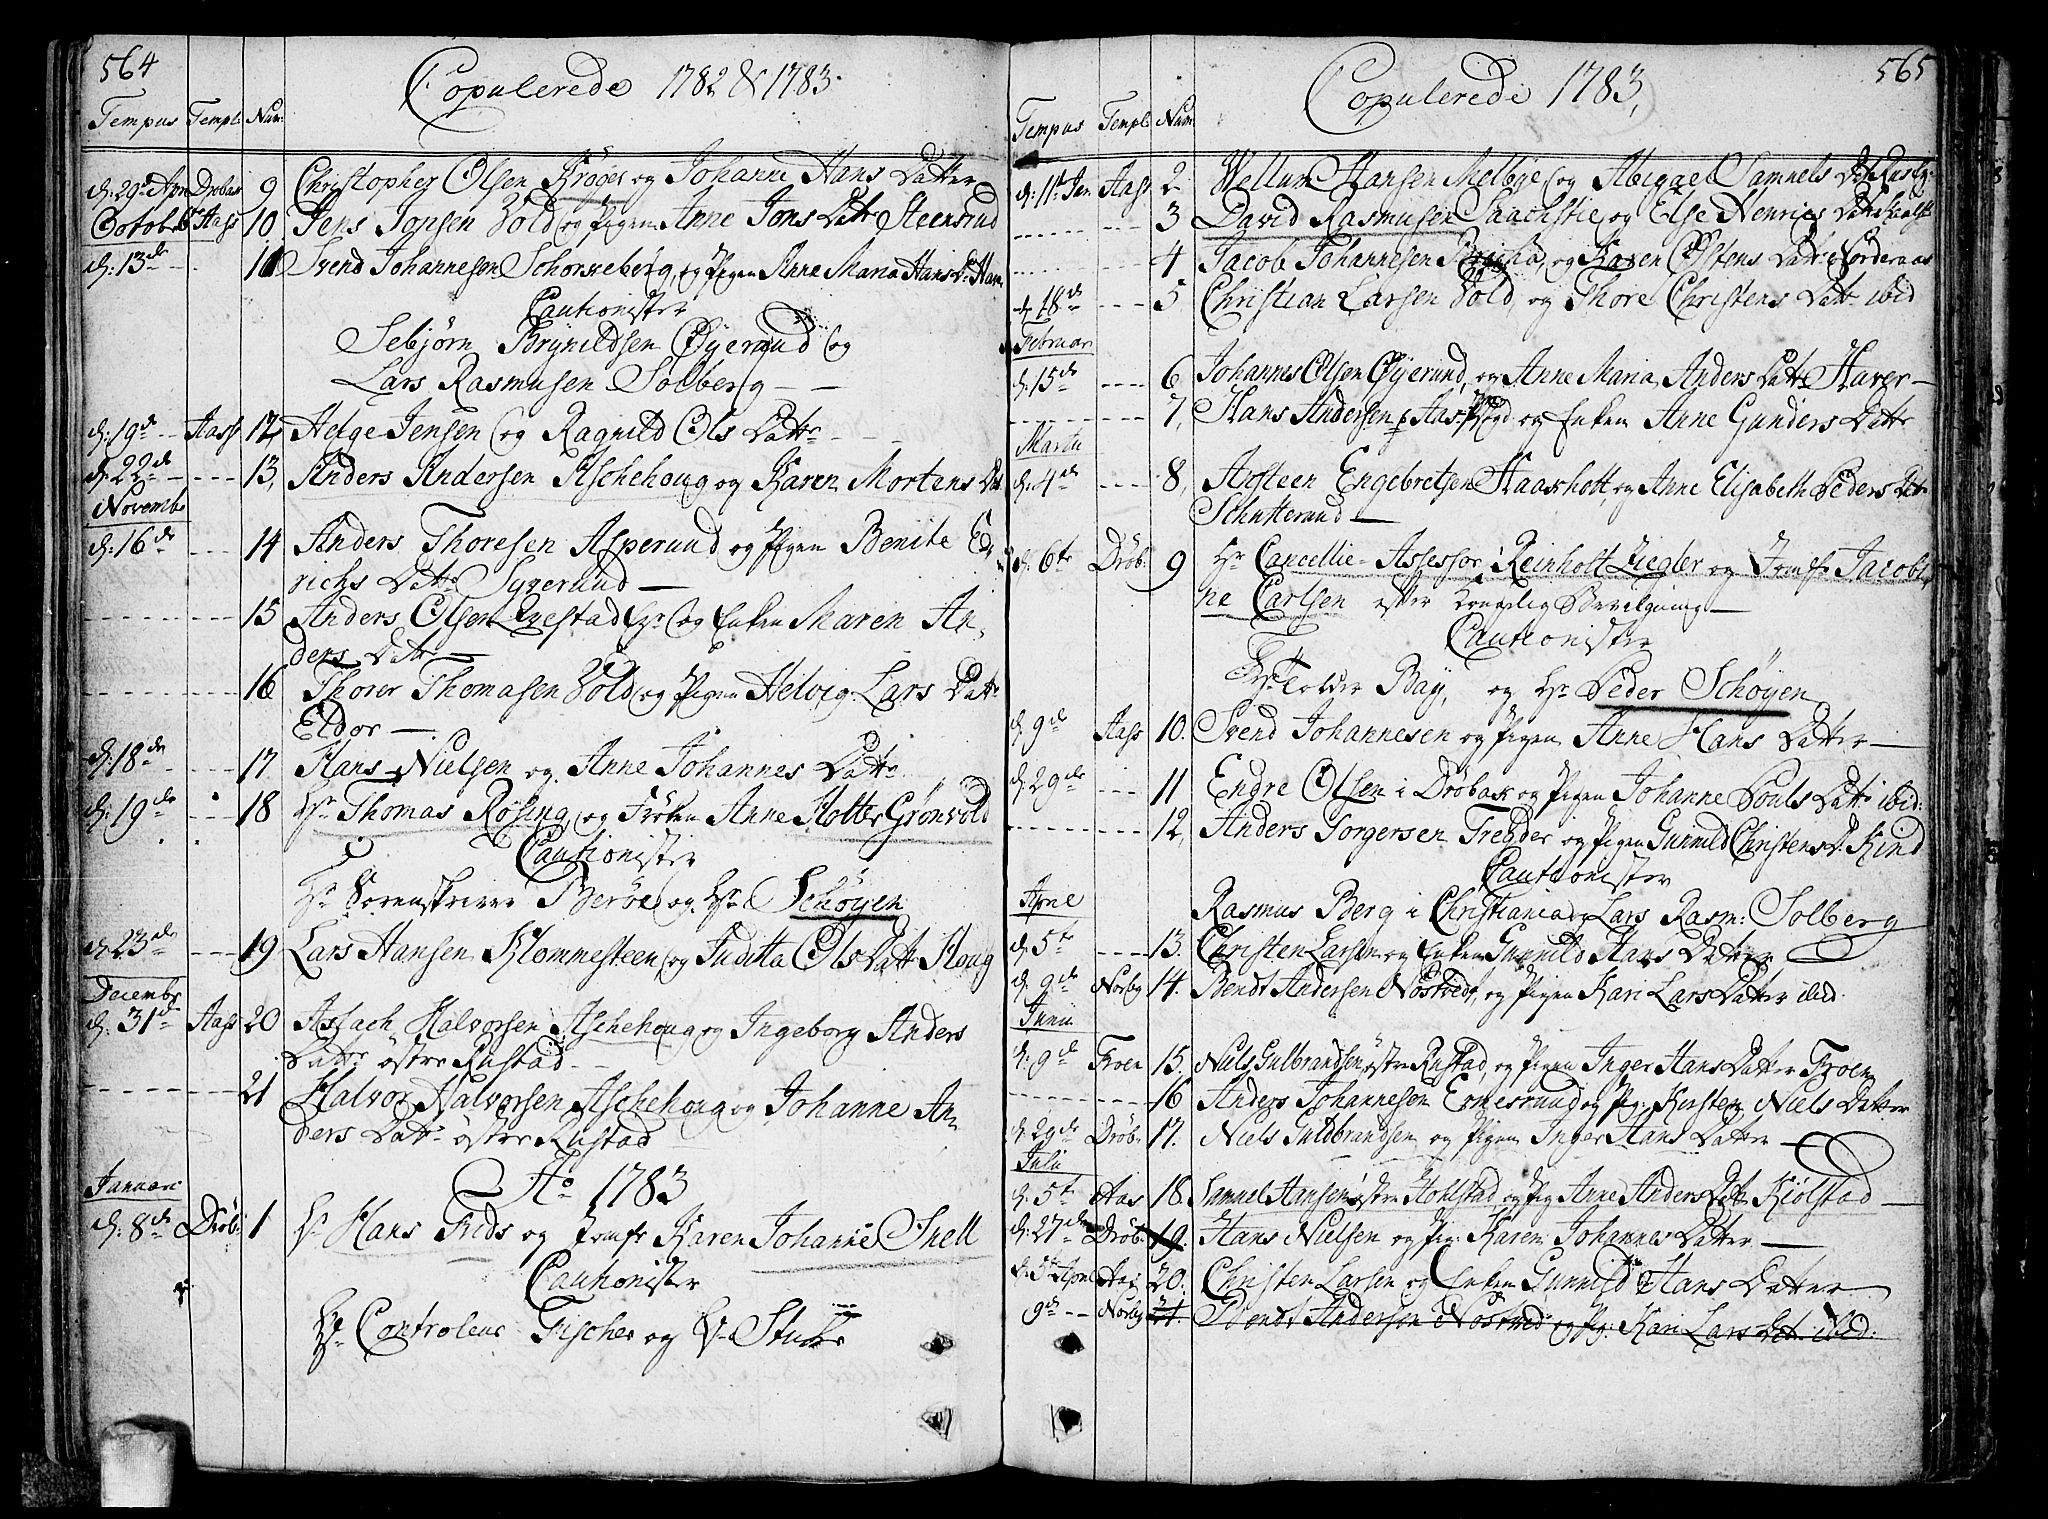 564
Copulerede 1782 & 1783.
Tempus Templ: Num:
d: 29de Apr Drobac 9 Christopher Olsen Krøger og Johanne Hans Datter
Octobr Aass 10 Jens Jonsen Vold og Pigen Anne Jons Dattr Steensrud
d: 13de 11 Svend Johannesen Schorkeberg, og Pigen Anne Maria Hans Dr Haver
Cautionister
Sebjørn Brynildsen Øyerud og
Lars Rasmusen Solberg
d: 19de Aass 12 Helge Jensen og Ragnild Ols Dattr
d: 22de 13, Anders Andersen Aschehoug og Karen Mortens Dat
Novembr
d: 16de 14 Anders Thoresen Asperund og Pigen Benite Ed-
richs Dattr Syverund
15 Anders Olsen og Enken Maren An-
ders Dattr
16 Thorer Thomasen Vold og Pigen Helvig Lars Dattr
Eldor
d: 18de 17 Hans Nielsen og Anne Johannes Dattr
d: 19de 18 Hr Thomas Rosing og Frøken Anne Holter Grønvold
Cautionister
Hr Sorenskriver Berøe og Hr Schøyen
d: 23de 19 Lars Hansen Klommesteen og Juditta Ols Dattr Houg
Decembr
d: 31de Aass 20 Aslach Halvorsen Aschehoug og Ingeborg Anders
Dattr østre Rustad
21 Halvor Halvorsen Aschehoug og Johanne An-
ders Dattr østre Rustad
Ao 1783
Januari
d: 8de Drøb: 1 Hr Hans Friis og Jomfr Karen Johanne Snell
Cautionister
Hr Controleur Fischer og Hr
565
Copulerede 1783,
Tempus Templ: Num:
d: 11te Jan Aass 2 Wellum Hansen Melbye og Abigael Samuels Dr
3 David Rasmusen Saachstie og Else Henrics Dattr
4 Jacob Johannesen og Karen Østens Dattr Norderaas
d: 18de 5 Christian Larsen Vold, og Thore Christens Dattr ibid
Februari
d: 15de 6 Johannes Olsen Øyerund, og Anne Maria Anders Dattr Haver
7, Hans Andersen Aas og Enken Anne Gunders Dattr
Martii
d: 4de 8, Arsteen Engebretsen Haasholt, og Anne Elisabeth Peders Dattr
Schutterud
d: 6te Drøb: 9 Hr Cancellie-Assessor Reinholt Ziegler og Jomfr Jacobi-
ne Carlsen efter Kongelig Bevilgning
Cautionister
Hr Tolder Bay, og Hr Peder Schøyen
d: 9de Aass 10. Svend Johannesen og Pigen Anne Hans Datter
d: 29de 11 Endre Olsen i Drøbach og Pigen Johanne Pouls Dattr ibid:
12, Anders Torgersen Tregder og Pigen Gunnild Christens D. Kind
Cautionister
Rasmus Berg i Christiania og Lars Rasm: Solberg
Apriel
d: 5te 13. Christen Larsen og Enken Gunnild Hans Datter
d: 9de Norby 14. Bendt Andersen Nøstvedt, og Pigen Kari Lars Datter ibid.
Junii
d: 9de Froen 15. Niels Gulbrandsen østre Rustad, og Pigen Inger Hans Datter Froen
16 Anders Johannesen Ermesrund og Pig: Kirsten Niels Datter
d: 29de Drøb: 17. Niels Guldbrandsen og Pigen Inger Hans Datter
Julii
d: 5te Aas 18. Samuel Hansen østre Hohlstad og Pig Anne Anders Dattr Kiølstad
d: 27de Drøb: 19. Hans Nielsen og Pig: Karen Johannes Datter
d: 5te Apr Aas 20. Christen Larsen og Enken Gunnild Hans Datter
9de Norby 21. Bendt Andersen Nøstved og Pig: Kari Lars Dat. ibid: